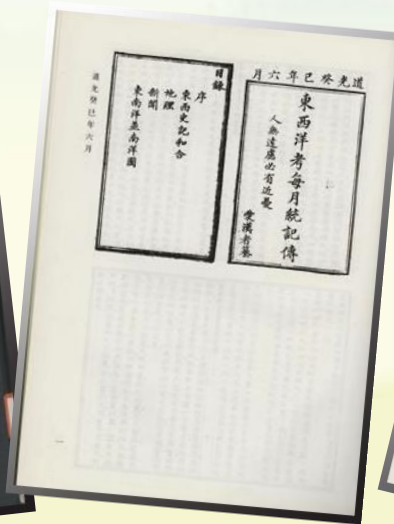 道光癸巳年六月
東西洋考每月統記傳
人無遠慮必有近憂
愛漢者纂
目錄
序
東西史記和合
地理
新聞
東南洋並南洋圖
道光癸巳年六月